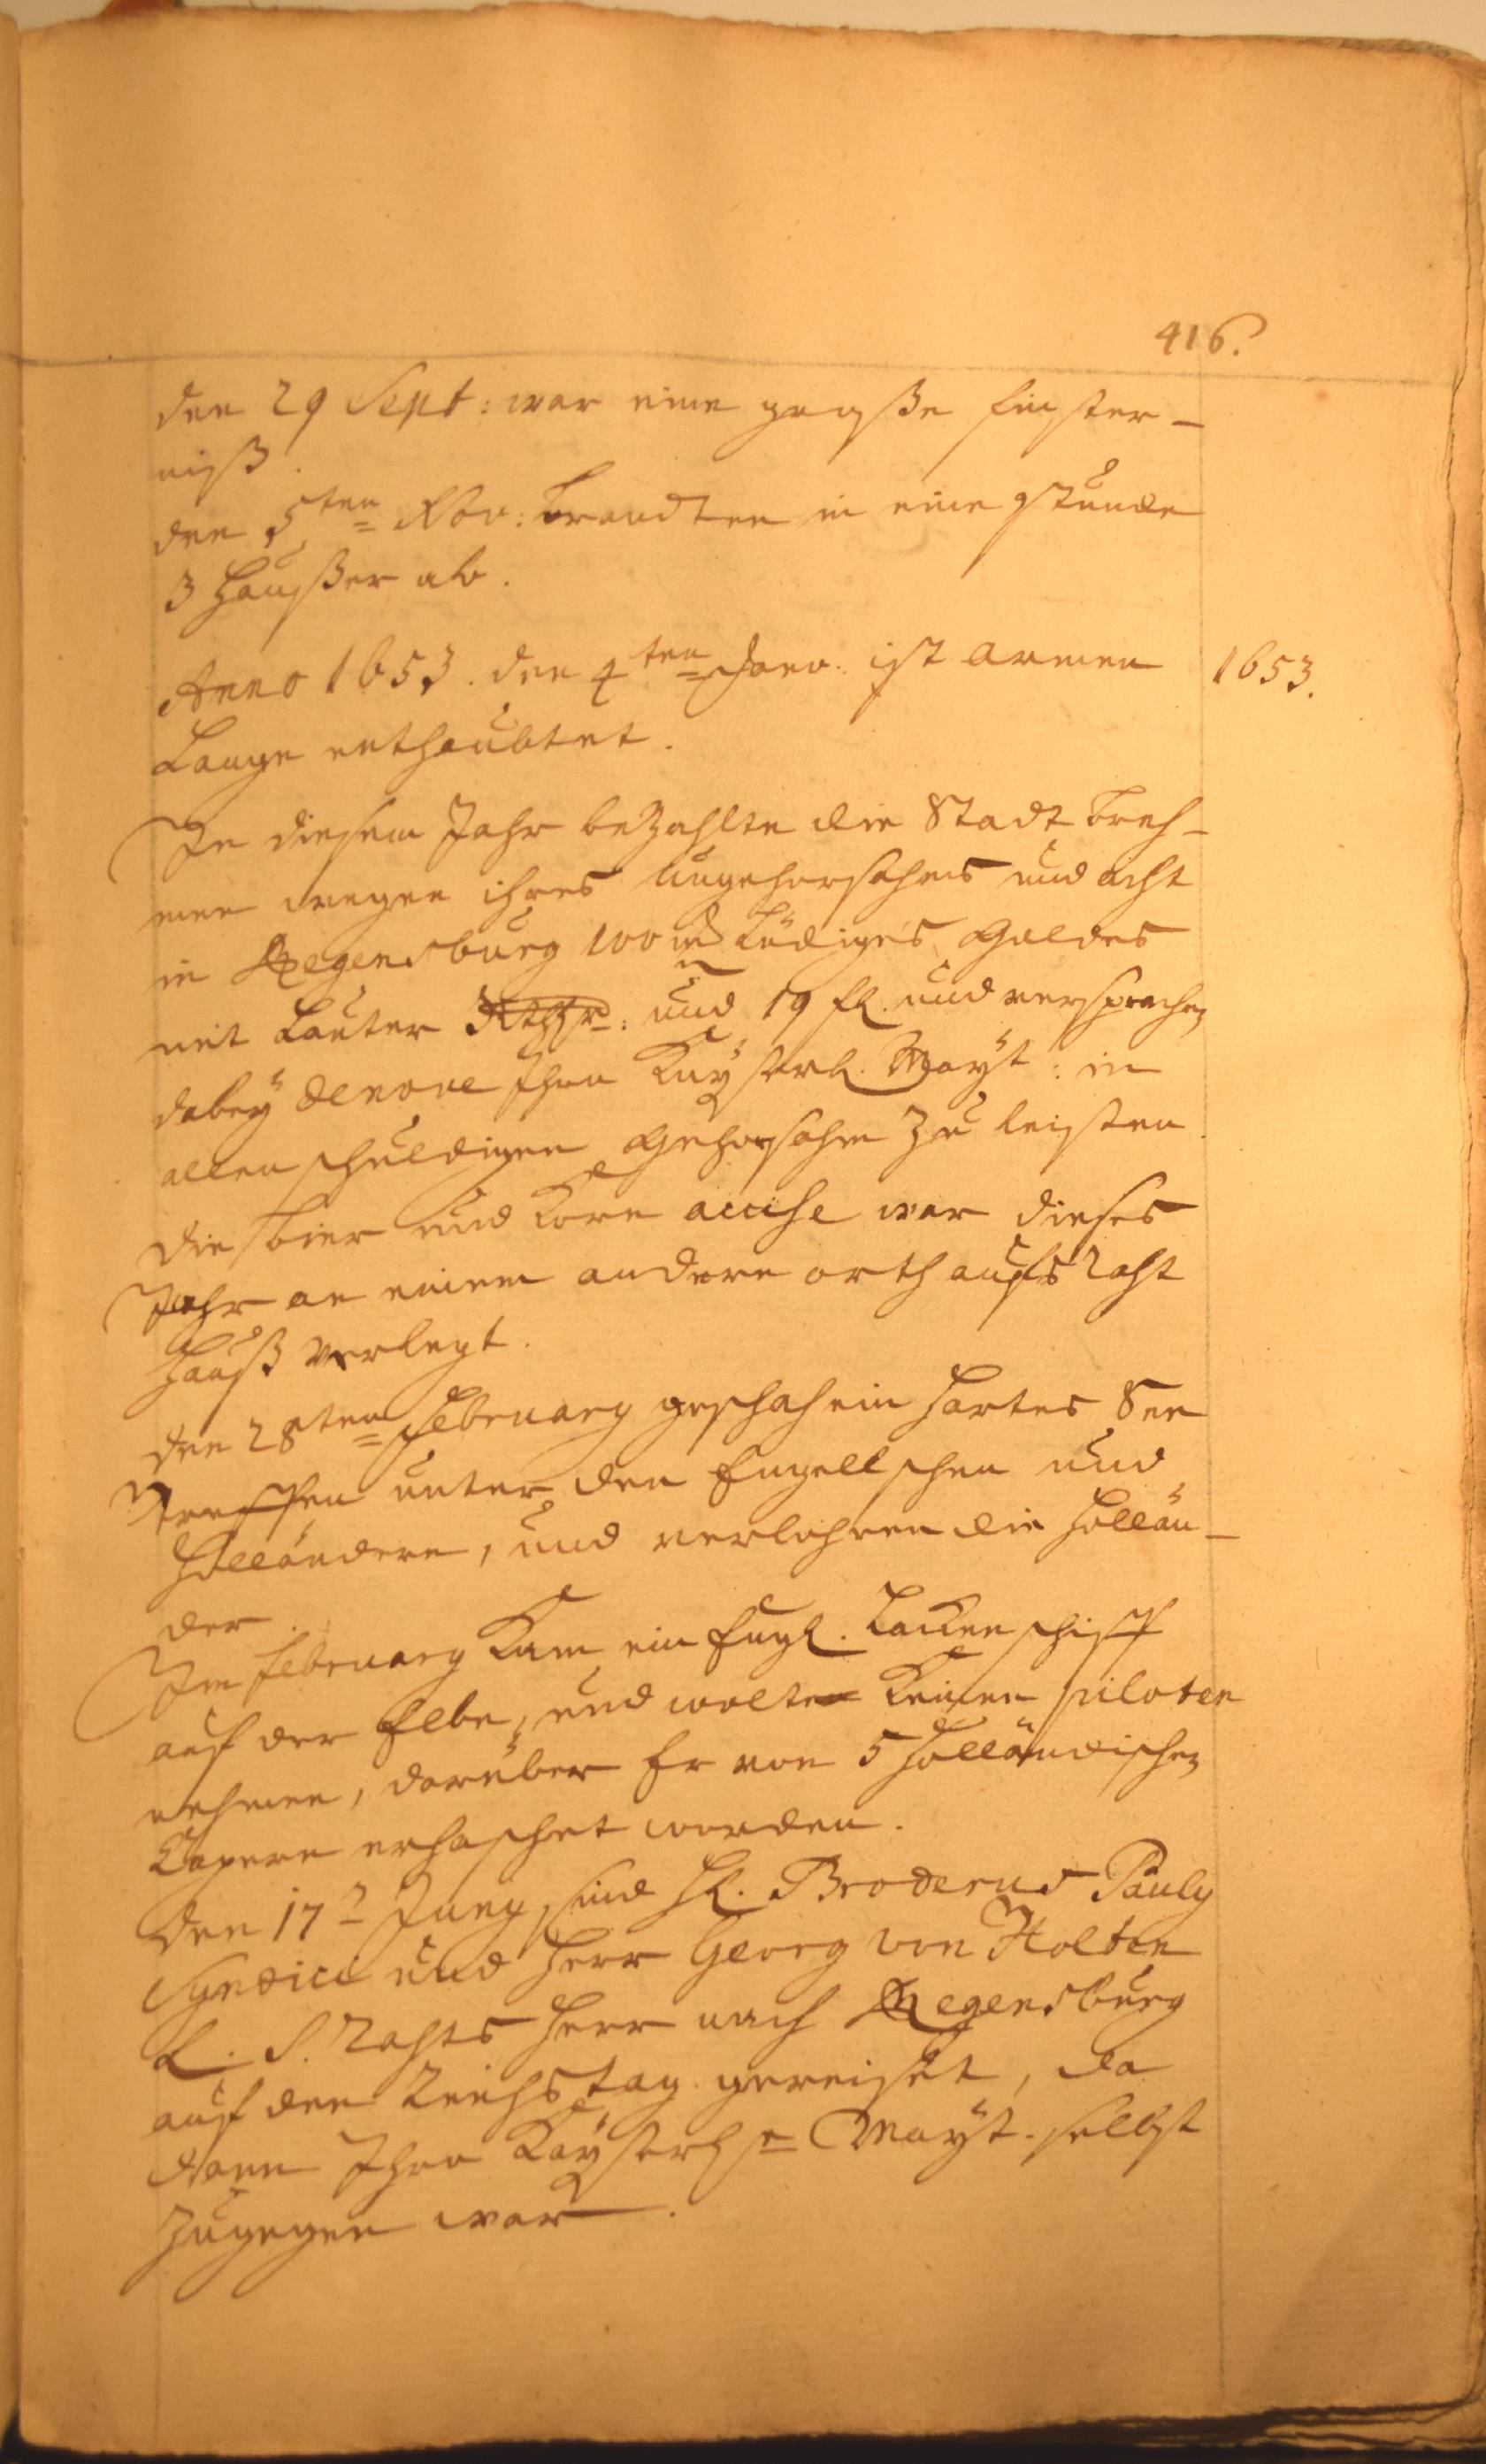 416.
den 29 Sept: war eine große finster-
niß.
den 5ten Nov: brandten in eine stunde
3 Haußer ab.
Anno 1653. den 4ten Janv. ist armen 1653.
Lange enthaubtet.
In diesem Jahr bezahlte die Stadt Breh-
men wegen ihres ungehorsahms und acht
in Regensburg 100 Lödiges Goldes
mit Lauter Rthlr: und 19 fl. und versprachen
dabey denove Ihro Kayserl. Mayt: in
allen schuldigen Gehorsahm zu leisten
die bier und Korn accise war dieses
Jahr an einem andern orth aufs Raht
Hauß verlegt.
den 28ten February geschah ein hartes See
Treffen unter den Engellschen und
Holländern, und verlohren die Hollän-
der.
Im February kam ein Engl. Lacken schiff
auf der Elbe, und wolte keinen piloten
nehmen, darüber Er von 5 Holländischen
Capern erhaschet worden.
Den 17 Juny sind H. Broderus Pauly
Syndici und Herr Georg von Holten
E. E. Rahts Herr nach Regensburg
auf den Reichstag gereiset, da
dann Ihro Kayserl. Mayt. selbst
zugegen war.